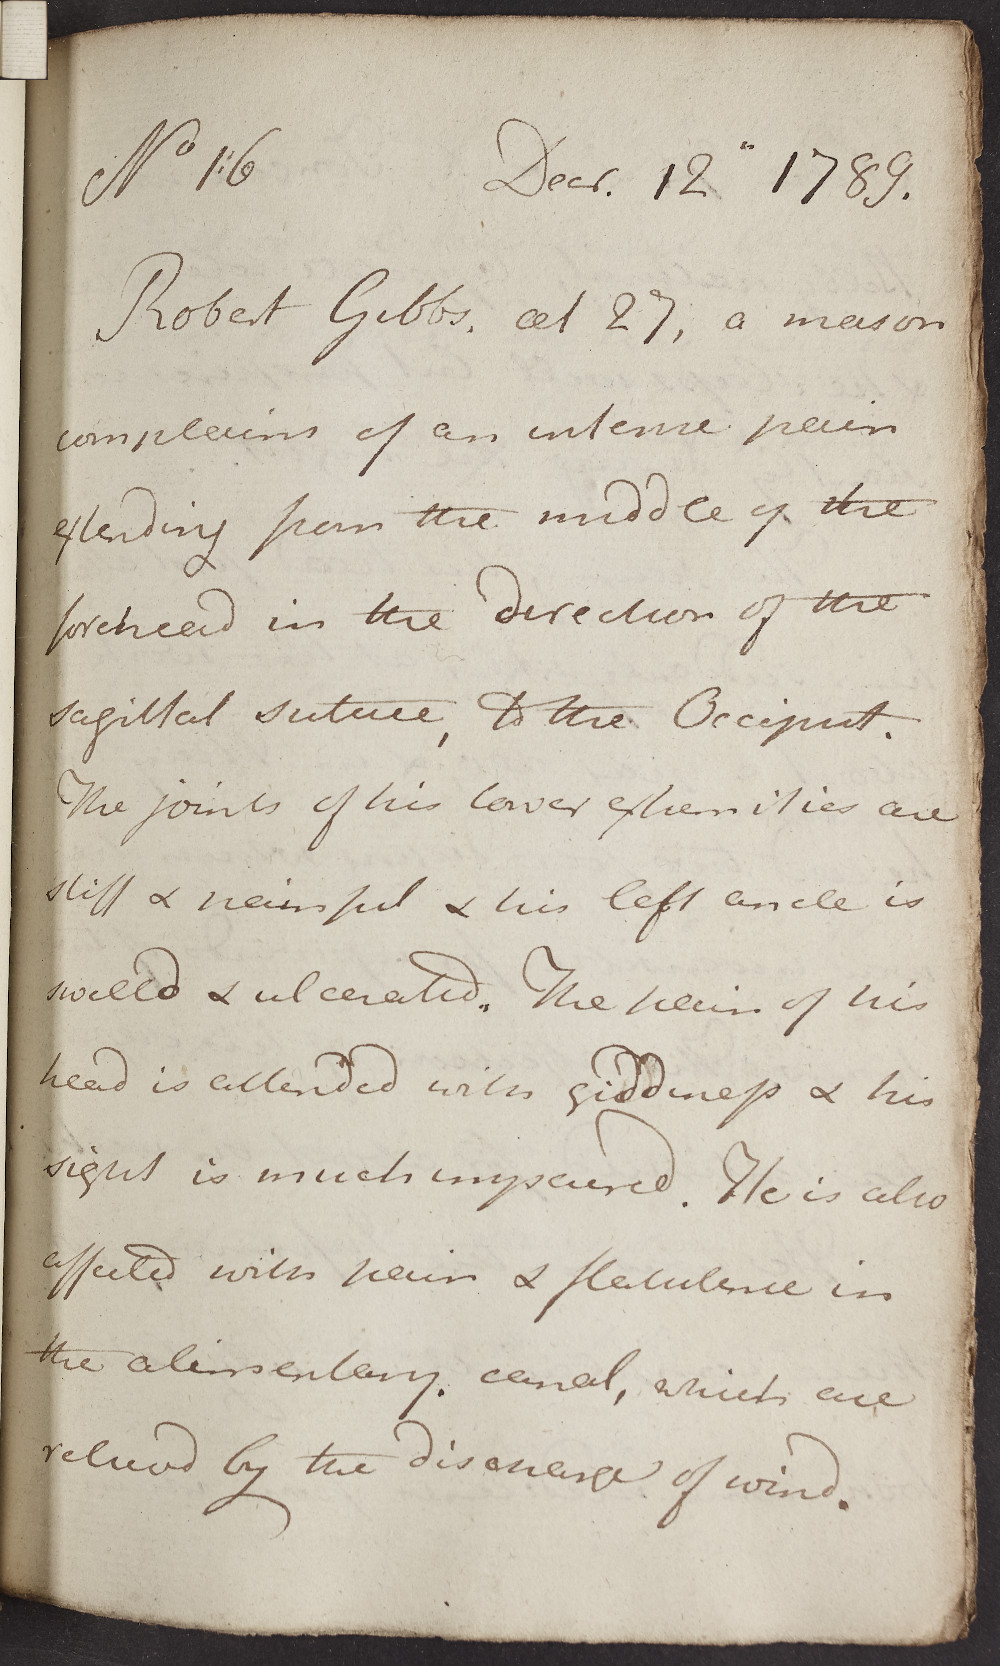 No 16 Decr. 12" 1789.
Robert Gibbs. æt 27, a mason
complains of an intense pain
extending from the middle of the
forehead in the direction of the
sagittal suture, to the Occiput.
The joints of his lower extremities are
stiff & painful & his left ancle is
swelld & ulcerated. The pain of his
head is attended with giddiness & his
sight is much impaired. He is also
affected with pain & flatulence in
the alimentary. canal, which are
relievd by the discharge of wind.